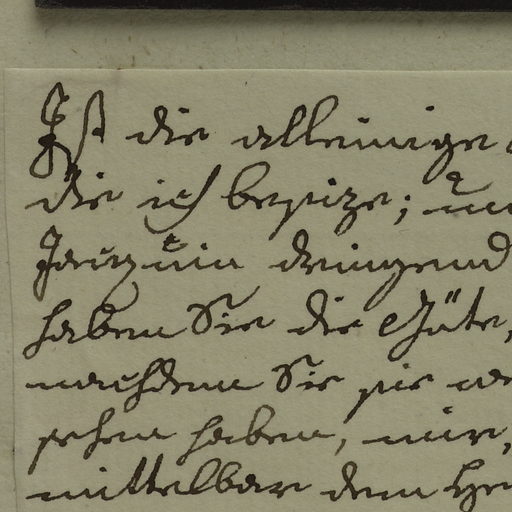 Ist die alleinige
die ich besize;
dringend
haben Sie die Güte,
nachdem Sie sie
sehen haben, mir,
mittelbar dem He